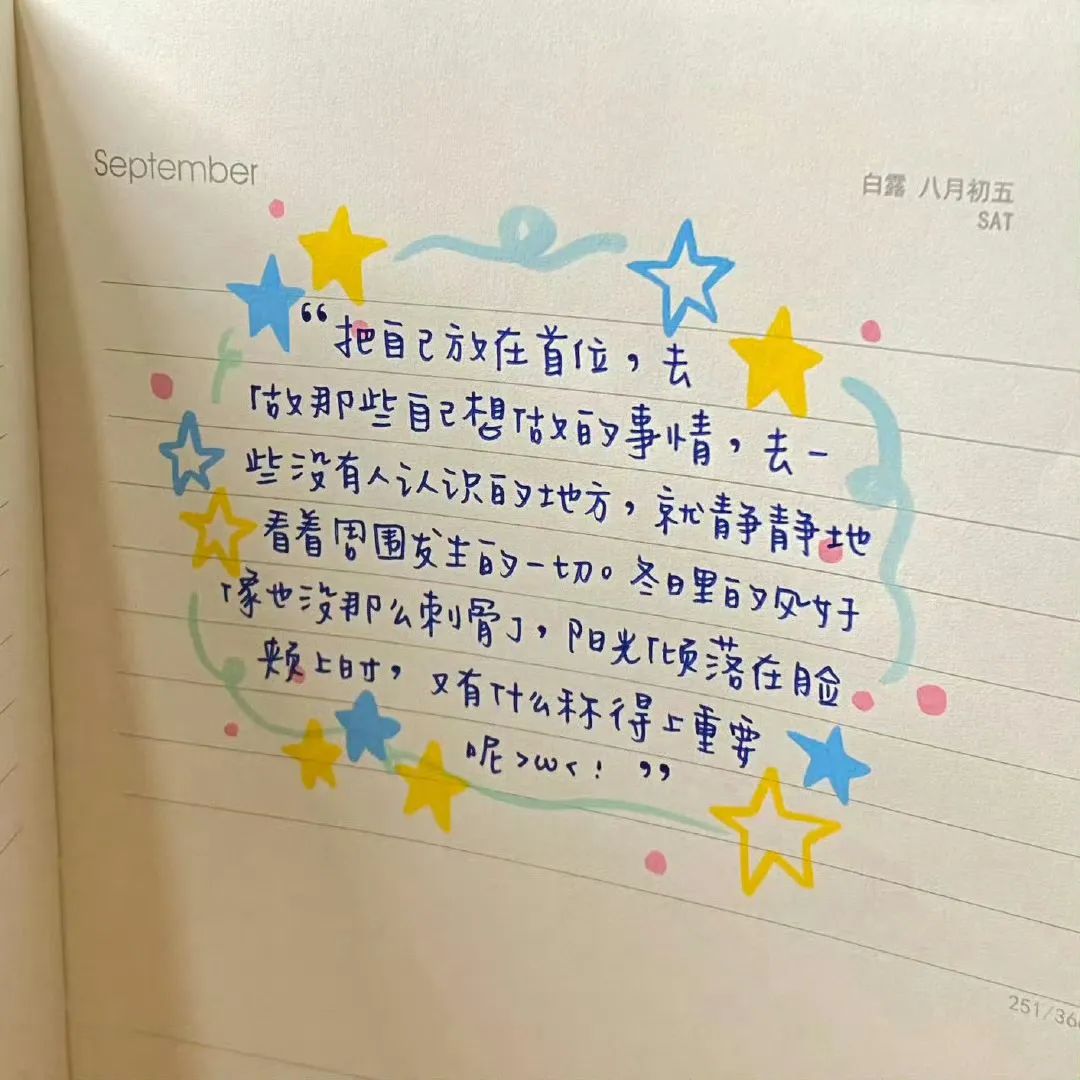 September
白露 八月初五
SAT
“把自己放在首位，去
做那些自己想做的事情，去一
些没有人认识的地方，就静静地
看着周围发生的一切。冬日里的风好
像也没那么刺骨了，阳光倾落在脸
颊上时，又有什么称得上重要
呢>ω<！”
251/366